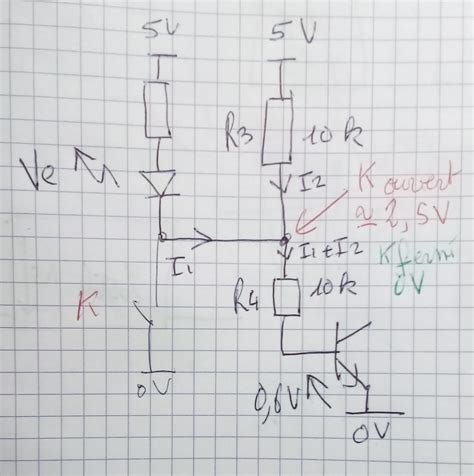 5V
5V
R3
10k
Ve
I2
K ouvert
≃ 2,5V
I1
I1+I2
K fermé
0V
K
R4
10k
0,6V
0V
0V